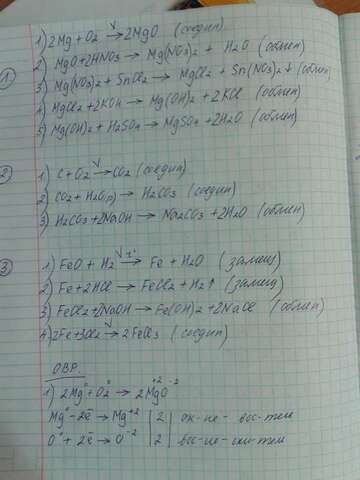 1) 2Mg + O2 → 2MgO (соедин)
① 2) MgO + 2HNO3 → Mg(NO3)2 + H2O (обмен)
3) Mg(NO3)2 + SnCl2 → MgCl2 + Sn(NO3)2 ↓ (обмен)
4) MgCl2 + 2KOH → Mg(OH)2 + 2KCl (обмен)
5) Mg(OH)2 + H2SO4 → MgSO4 + 2H2O (обмен)
② 1) C + O2 → CO2 (соедин)
2) CO2 + H2O → H2CO3 (соедин)
3) H2CO3 + 2NaOH → Na2CO3 + 2H2O (обмен)
③ 1) FeO + H2 → Fe + H2O (замещ)
2) Fe + 2HCl → FeCl2 + H2↑ (замещ)
3) FeCl2 + 2NaOH → Fe(OH)2 + 2NaCl (обмен)
4) 2Fe + 3Cl2 → 2FeCl3 (соедин)
ОВР.
1) 2Mg⁰ + O2⁰ → 2Mg⁺²O⁻²
Mg⁰ - 2e → Mg⁺² | 2 | ок-не - вос-тель
O⁰ + 2e → O⁻² | 2 | вос-ие - оки-тель